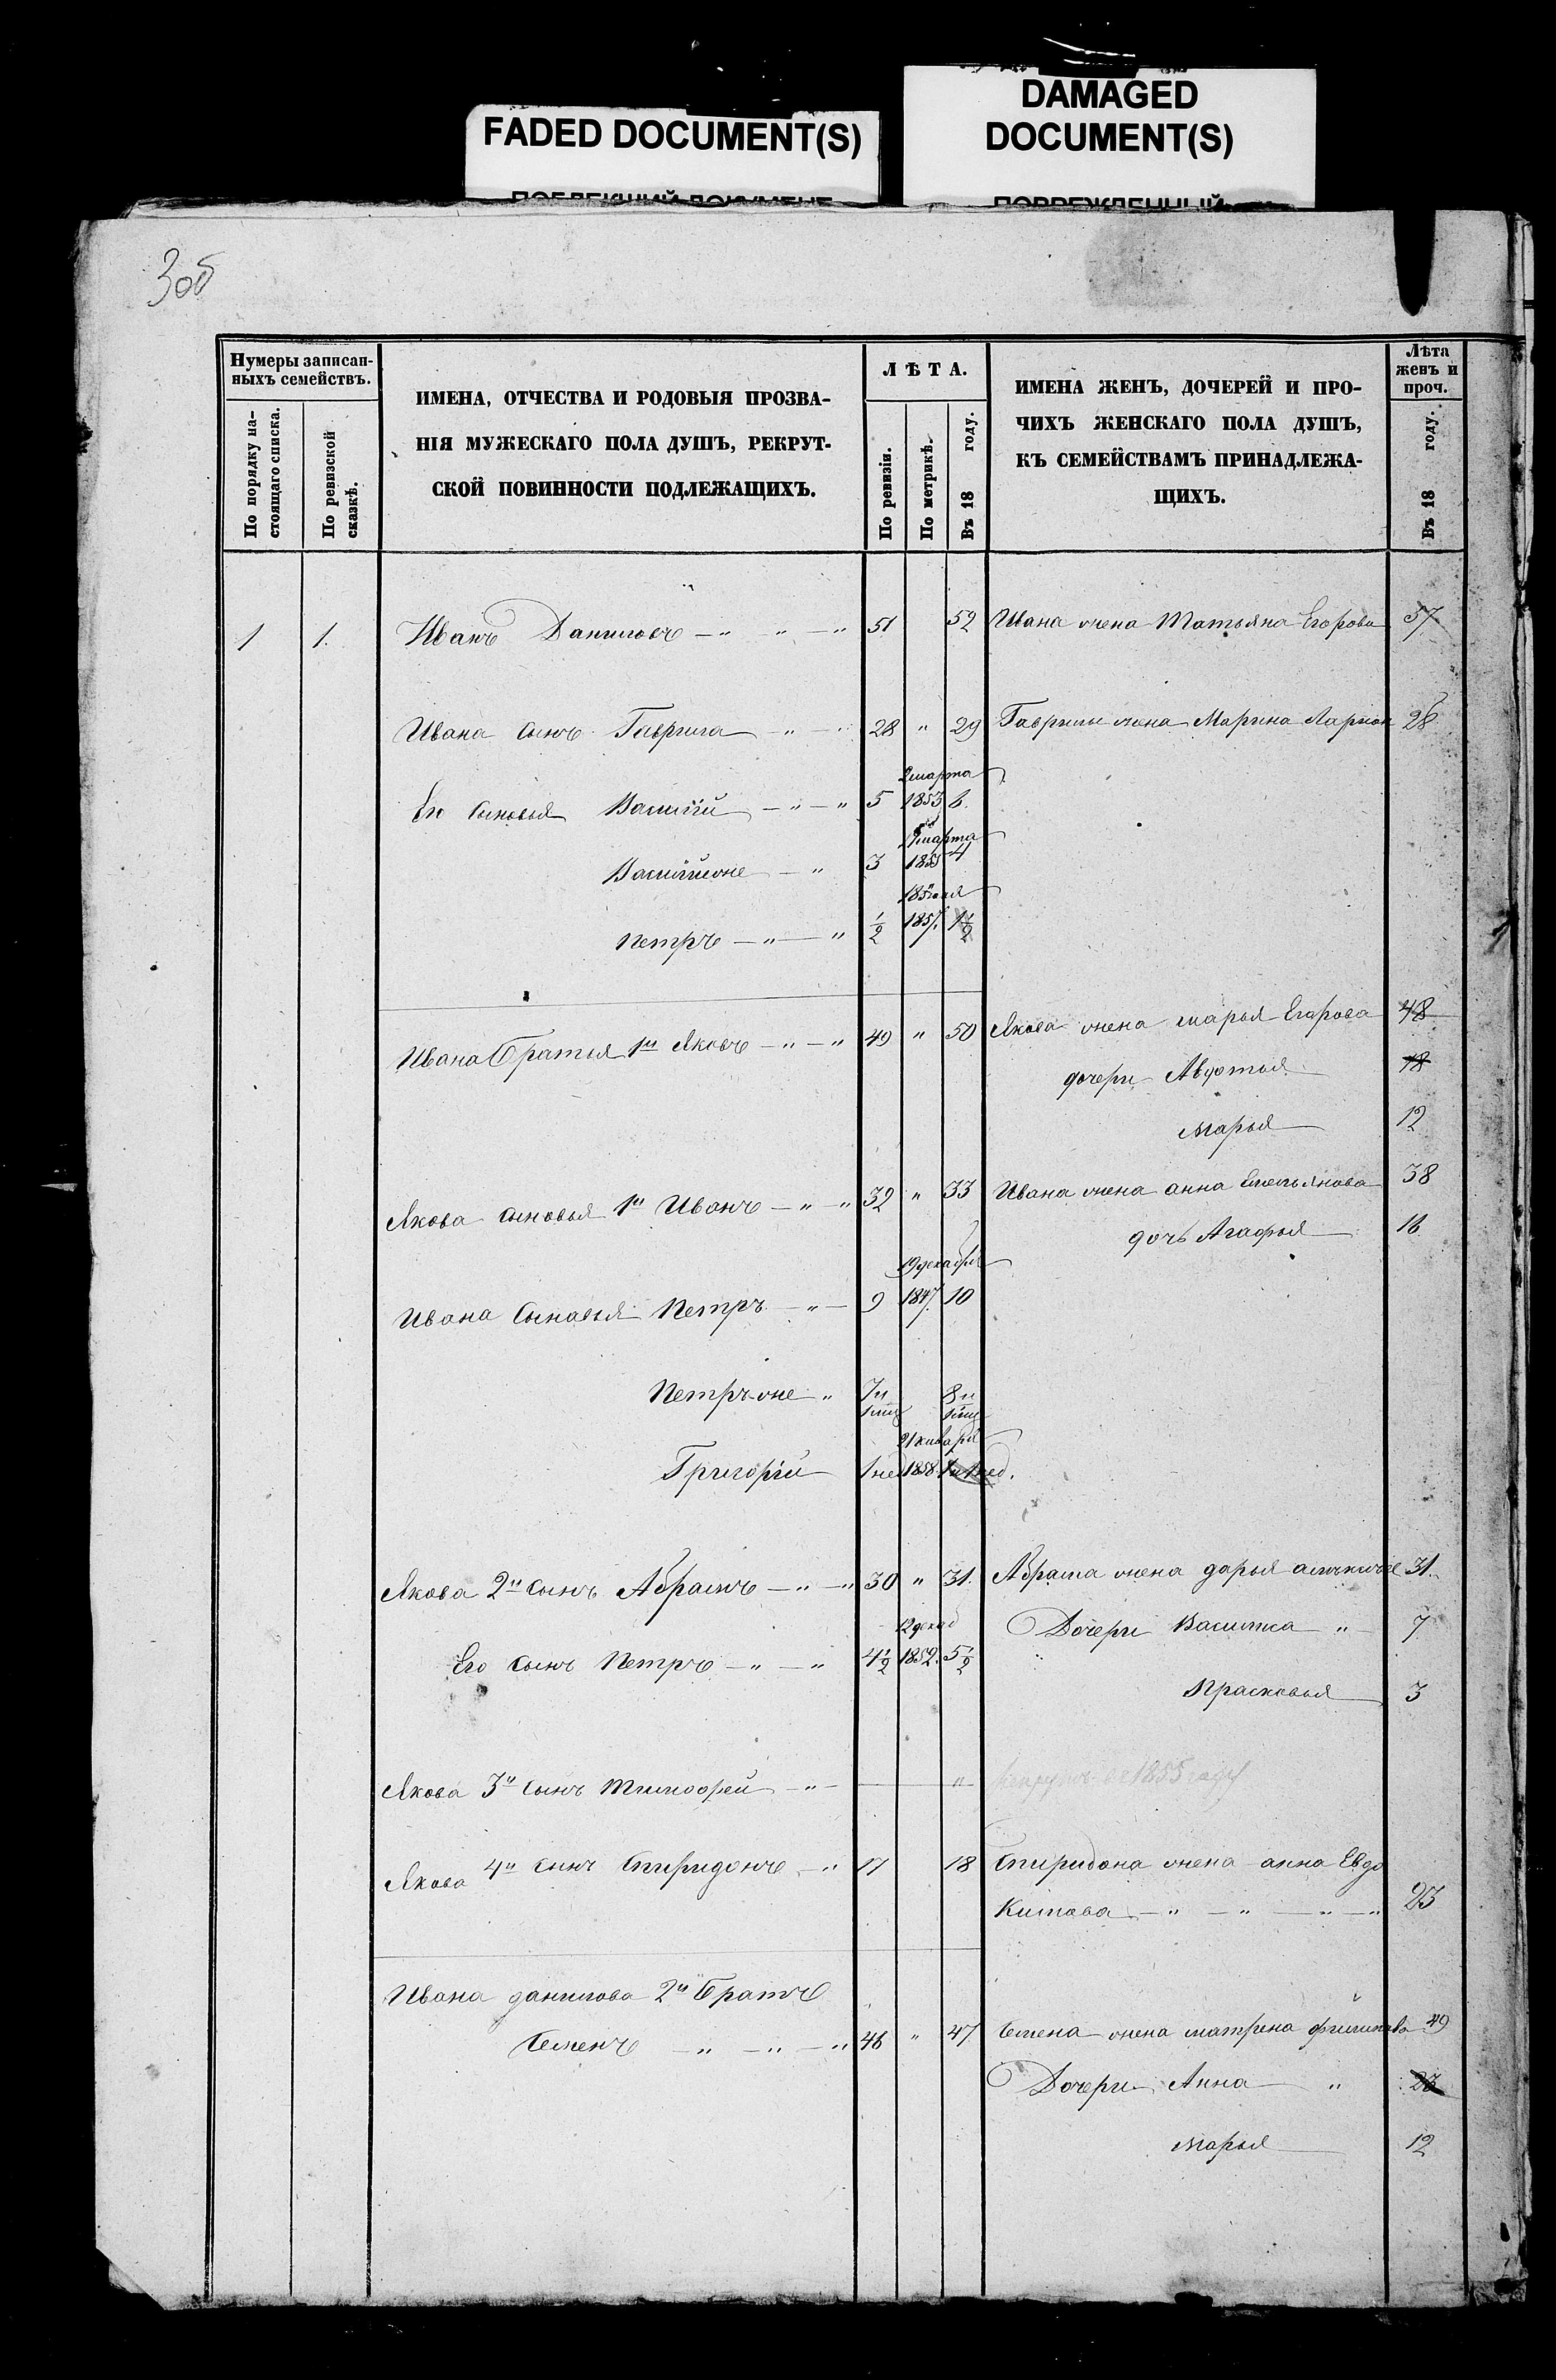 FADED DOCUMENT(S)
DAMAGED
DOCUMENT(S)
3об
Нумеры записан-
ныхъ семействъ.
По порядку на-
стоящаго списка.
По ревизской
сказкѣ.
ИМЕНА, ОТЧЕСТВА И РОДОВЫЯ ПРОЗВА-
НІЯ МУЖЕСКАГО ПОЛА ДУШЪ, РЕКРУТ-
СКОЙ ПОВИННОСТИ ПОДЛЕЖАЩИХЪ.
ЛѢТА.
По ревизіи.
По метрикѣ.
Въ 18 году.
ИМЕНА ЖЕНЪ, ДОЧЕРЕЙ И ПРО-
ЧИХЪ ЖЕНСКАГО ПОЛА ДУШЪ,
КЪ СЕМЕЙСТВАМЪ ПРИНАДЛЕЖА-
ЩИХЪ.
Лѣта
женъ и
проч.
Въ 18 году.
1 1. Иванъ Даниловъ — " — " — " 51 52 Ивана жена Татьяна Егорова 57
Ивана сынъ Гаврила — " — " 28 " 29 Гаврилы жена Марина Ларион 28
2 марта
Его сыновья Василій — " — " 5 1853 6.
марта
Василій же — " 3 1855 4
18 мая
Петръ — " — " 1/2 1857. 1 1/2
Ивана братья 1й Яковъ — " — " 49 " 50 Якова жена марья Егарова 48
дочери Авдотья 18
марья 12
Якова сыновья 1й Иванъ — " — " 32 " 33 Ивана жена анна Емельянова 38
дочь Агафья 16
19 декабря
Ивана сыновья Петръ — " — 9 1847. 10
Петръ же " 7и 8и
1 мѣц 1 мѣц
21 января
Григорій 1 нед 1858. 1 и 1 нед.
Якова 2й сынъ Абрамъ — " — " 30 " 31. Абрама жена дарья 31.
12 декаб
Дочери Василиса " — 7
Его сынъ Петръ — " — " 4 1/2 1852. 5 1/2
Прасковья 3
Якова 3й сынъ Тимофей — " — " 1855 году
Якова 4й сынъ Спиридонъ — " 17 18 Спиридона жена анна Евдо
Кимова — " — " — " — " 23
Ивана данилова 2й братъ
Семенъ — " — " — " 46 " 47 Семена жена матрена 49
Дочери Анна " 23
марья 12